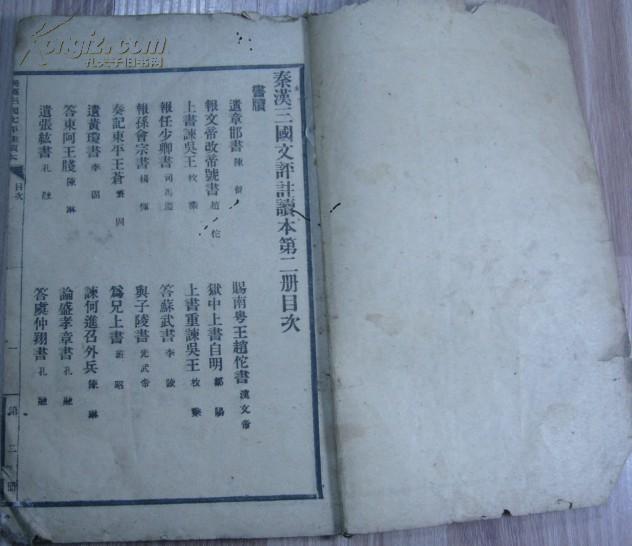 秦漢三國文評註讀本第二册目次
書牘
遺章邯書 陳餘
賜南粤王趙佗書 漢文帝
報文帝改帝號書 趙佗
獄中上書自明 鄒陽
上書諫吳王 枚乘
上書重諫吳王 枚乘
報任少卿書 司馬遷
答蘇武書 李陵
報孫會宗書 楊惲
與子陵書 光武帝
奏記東平王蒼 班固
爲兄上書 班昭
遺黃瓊書 李固
諫何進召外兵 陳琳
答東阿王牋 陳琳
論盛孝章書 孔融
遺張紘書 孔融
答虞仲翔書 孔融
秦漢三國文評註讀本
目次
一
第二册
Kongfz.com
孔夫子旧书网